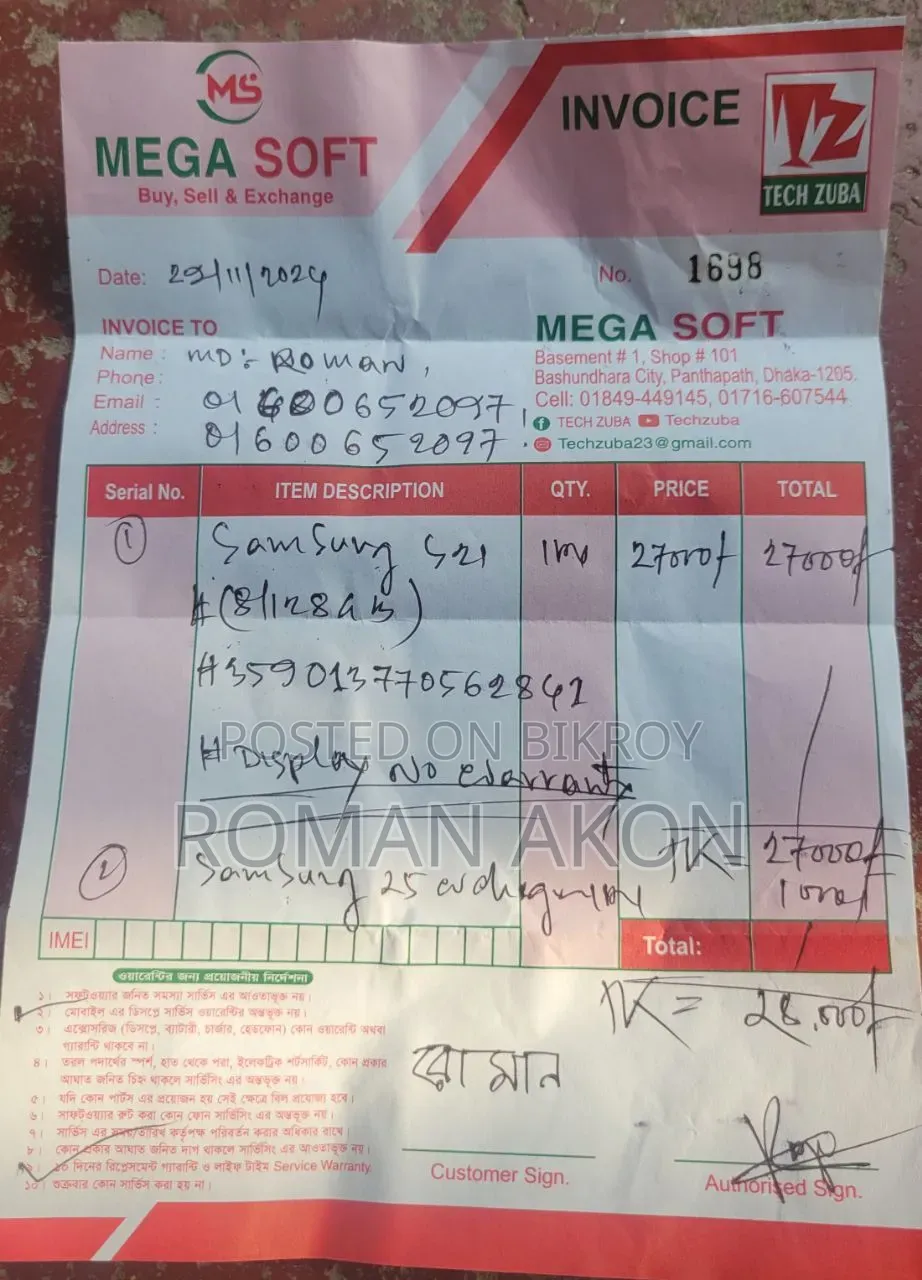 MS
MEGA SOFT
Buy, Sell & Exchange
INVOICE
TZ
TECH ZUBA
Date: 29/11/2024
No. 1698
INVOICE TO
Name : MD:- Roman,
Phone :
Email : 01600652097,
Address : 01600652097.
MEGA SOFT
Basement # 1, Shop # 101
Bashundhara City, Panthapath, Dhaka-1205.
Cell: 01849-449145, 01716-607544
TECH ZUBA Techzuba
Techzuba23@gmail.com
Serial No. ITEM DESCRIPTION QTY. PRICE TOTAL
1 Samsung S21 27000/- 27000/-
#(8/128GB)
#359013770562841
POSTED ON BIKROY
# Display No warranty
ROMAN AKON
TK= 27000/-
2 Samsung 25 1000/-
IMEI Total:
TK= 28,000/-
ওয়ারেন্টির জন্য প্রয়োজনীয় নির্দেশনা
১। সফ্টওয়্যার জনিত সমস্যা সার্ভিস এর আওতাভুক্ত নয়।
২। মোবাইল এর ডিসপ্লে সার্ভিস ওয়ারেন্টির অন্তর্ভুক্ত নয়।
৩। এক্সেসরিজ (ডিসপ্লে, ব্যাটারী, চার্জার, হেডফোন) কোন ওয়ারেন্টি অথবা
গ্যারান্টি থাকবে না।
৪। তরল পদার্থের স্পর্শ, হাত থেকে পরা, ইলেকট্রিক শর্টসার্কিট, কোন প্রকার
আঘাত জনিত চিহ্ন থাকলে সার্ভিসিং এর অন্তর্ভুক্ত নয়।
৫। যদি কোন পার্টস এর প্রয়োজন হয় সেই ক্ষেত্রে বিল প্রযোজ্য হবে।
৬। সাফ্টওয়্যার রুট করা কোন ফোন সার্ভিসিং এর অন্তর্ভুক্ত নয়।
৭। সার্ভিস এর সময়/তারিখ কর্তৃপক্ষ পরিবর্তন করার অধিকার রাখে।
৮। কোন প্রকার আঘাত জনিত দাগ থাকলে সার্ভিসিং এর আওতাভুক্ত নয়।
৯। ১০ দিনের রিপ্লেসমেন্ট গ্যারান্টি ও লাইফ টাইম Service Warranty.
১০। শুক্রবার কোন সার্ভিস করা হয় না।
রোমান
Customer Sign.
Authorised Sign.